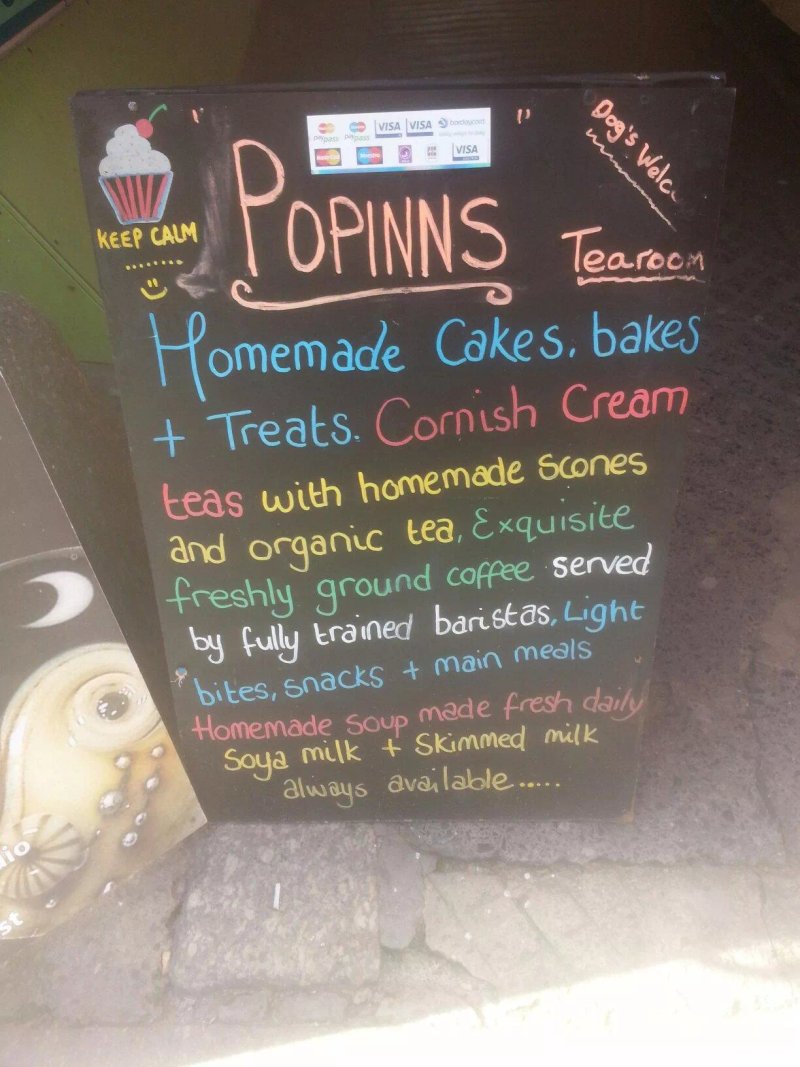 "POPINNS"
paypass paypass VISA VISA barclaycard
MasterCard Maestro VISA
Dog's Welc
KEEP CALM
........
Tearoom
Homemade Cakes, bakes
+ Treats. Cornish Cream
teas with homemade scones
and organic tea, Exquisite
freshly ground coffee served
by fully trained baristas, Light
bites, snacks + main meals
Homemade soup made fresh daily
Soya milk + Skimmed milk
always available.....
io
st